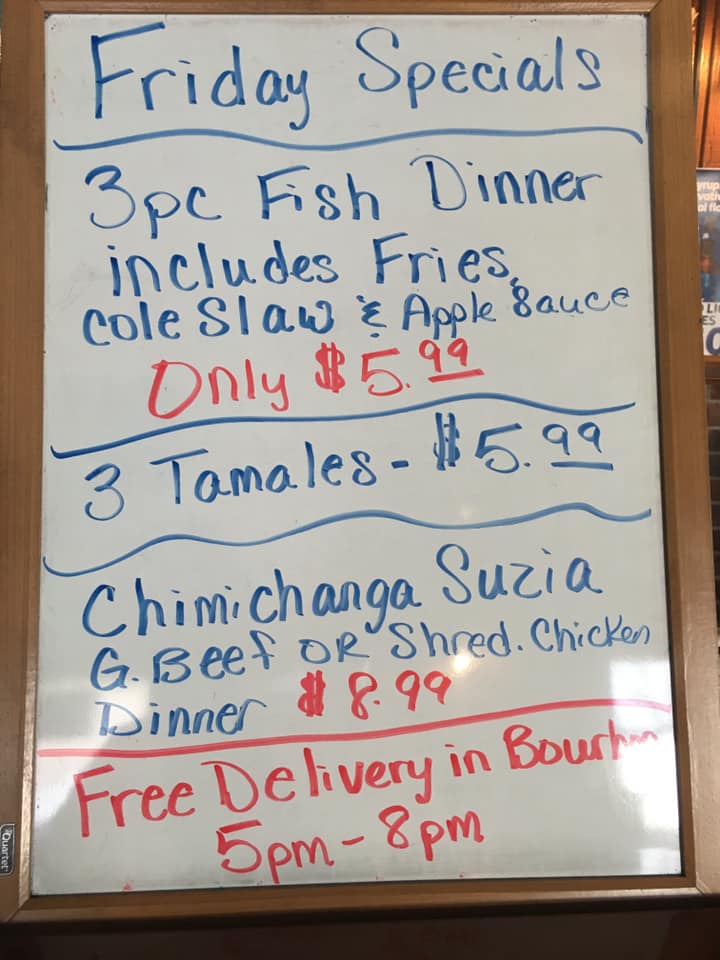 Friday Specials
3pc Fish Dinner
includes Fries,
cole Slaw & Apple Sauce
Only $5.99
3 Tamales - $5.99
Chimichanga Suzia
G. Beef OR Shred. Chicken
Dinner $8.99
Free Delivery in Bourbon
5pm - 8pm
Quartet